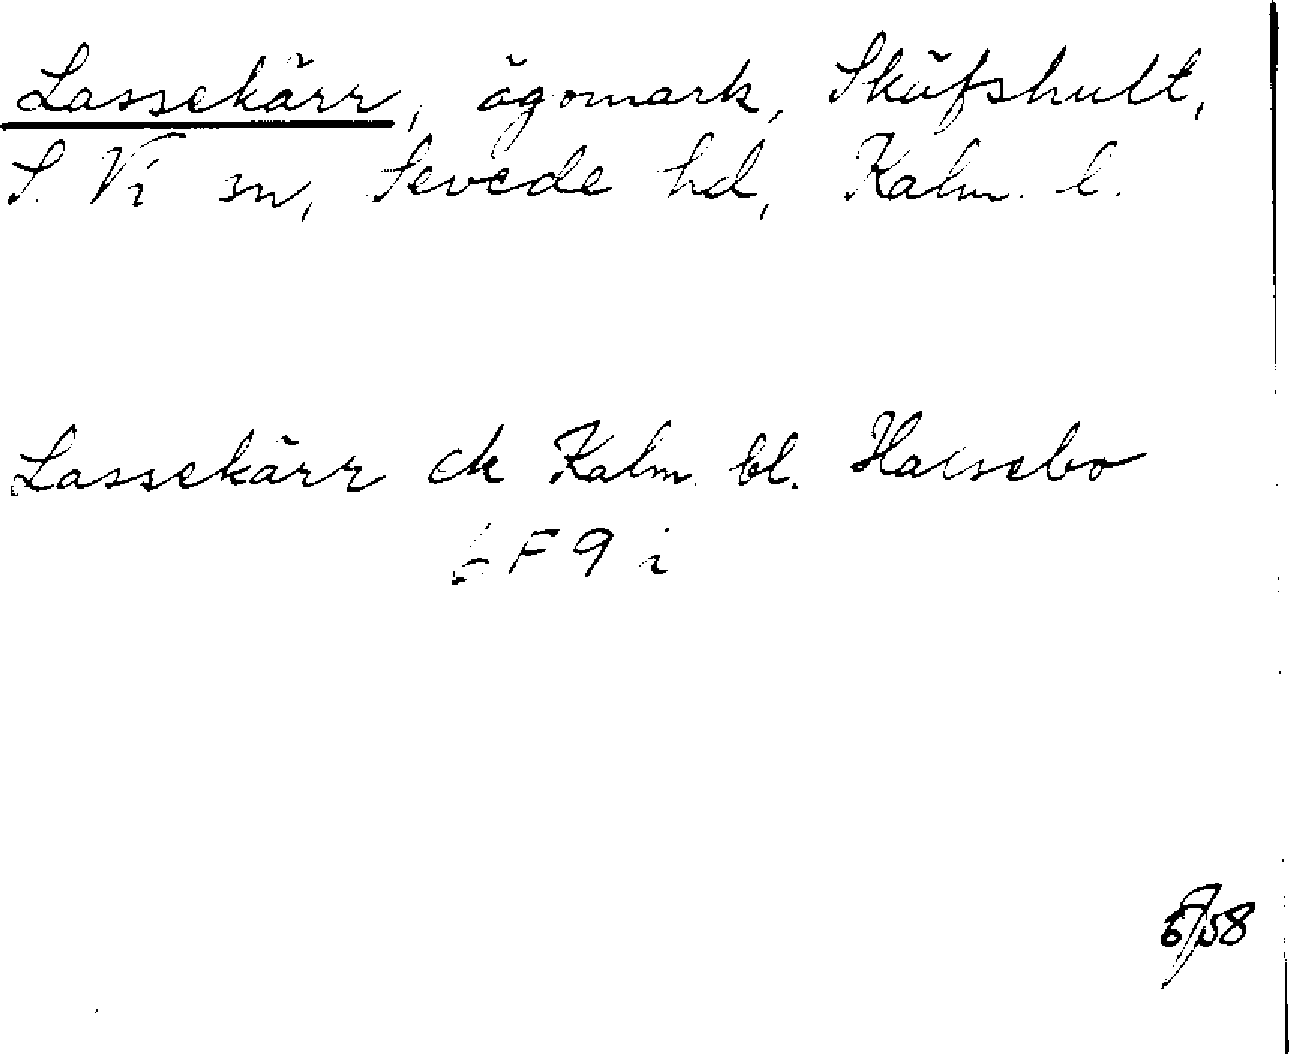 Lassekärr, ägomark, Skäfshult,
S. Vi sn, Sevede hd, Kalm. l.
Lassekärr ek Kalm. bl. Hacsebo
6F 9 i